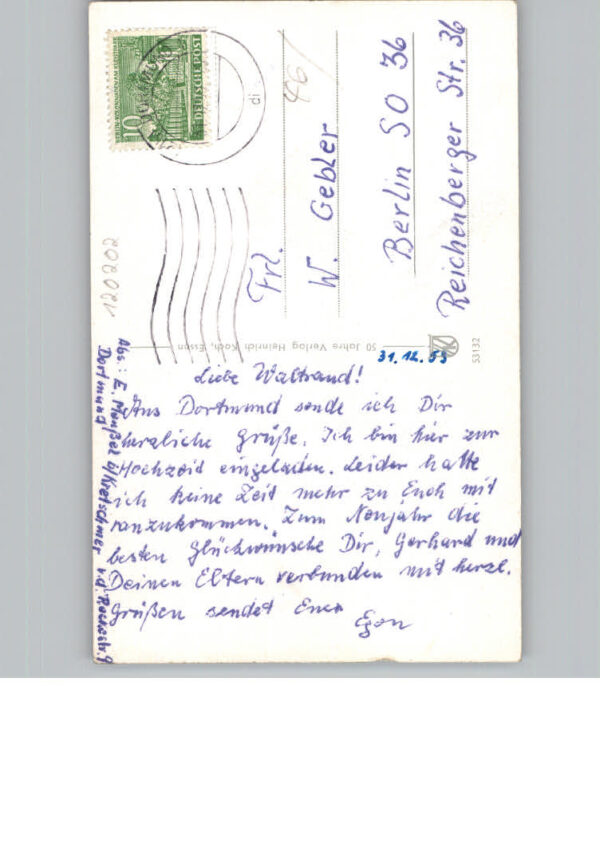 10
DEUTSCHE POST
di
46/
Frl.
W. Gebler
Berlin SO 36
Reichenberger Str. 36
202021
50 Jahre Verlag Heinrich Koch, Essen
53132
31.12.53
Liebe Waltraud!
Aus Dortmund sende ich Dir
herzliche Grüße. Ich bin hier zur
Hochzeit eingeladen. Leider hatte
ich keine Zeit mehr zu Euch mit
ranzukommen. Zum Neujahr die
besten Glückwünsche Dir, Gerhard und
Deinen Eltern verbunden mit herzl.
Grüßen sendet Euer
Egon
Abs.: E. b/Kretschmer
Dortmund v.d.